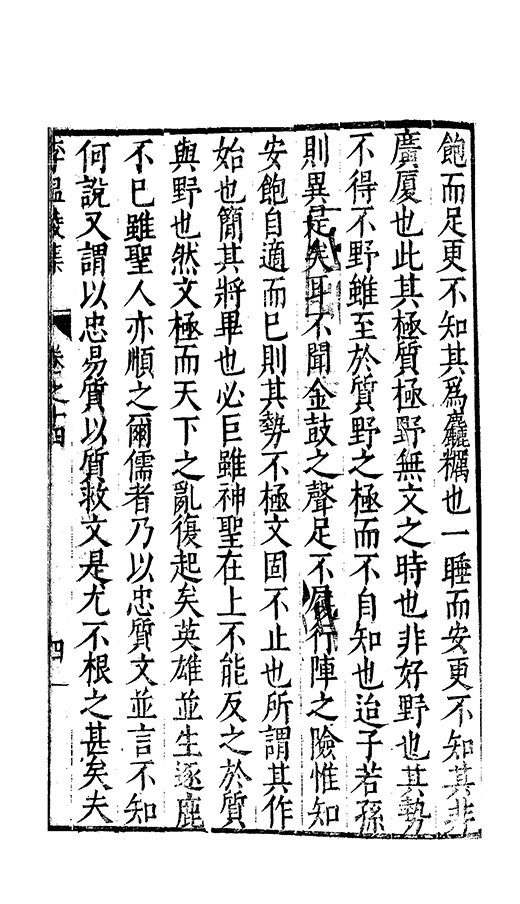 飽而足更不知其為麤糲也一睡而安更不知其非
廣厦也此其極質極野無文之時也非好野也其勢
不得不野雖至於質野之極而不自知也迨子若孫
則異是矣耳不聞金鼓之聲足不履行陣之險惟知
安飽自適而已則其勢不極文固不止也所謂其作
始也簡其將畢也必巨雖神聖在上不能反之於質
與野也然文極而天下之亂復起矣英雄並生逐鹿
不已雖聖人亦順之爾儒者乃以忠質文並言不知
何說又謂以忠易質以質救文是尤不根之甚矣夫
李温陵集 卷之十四 四